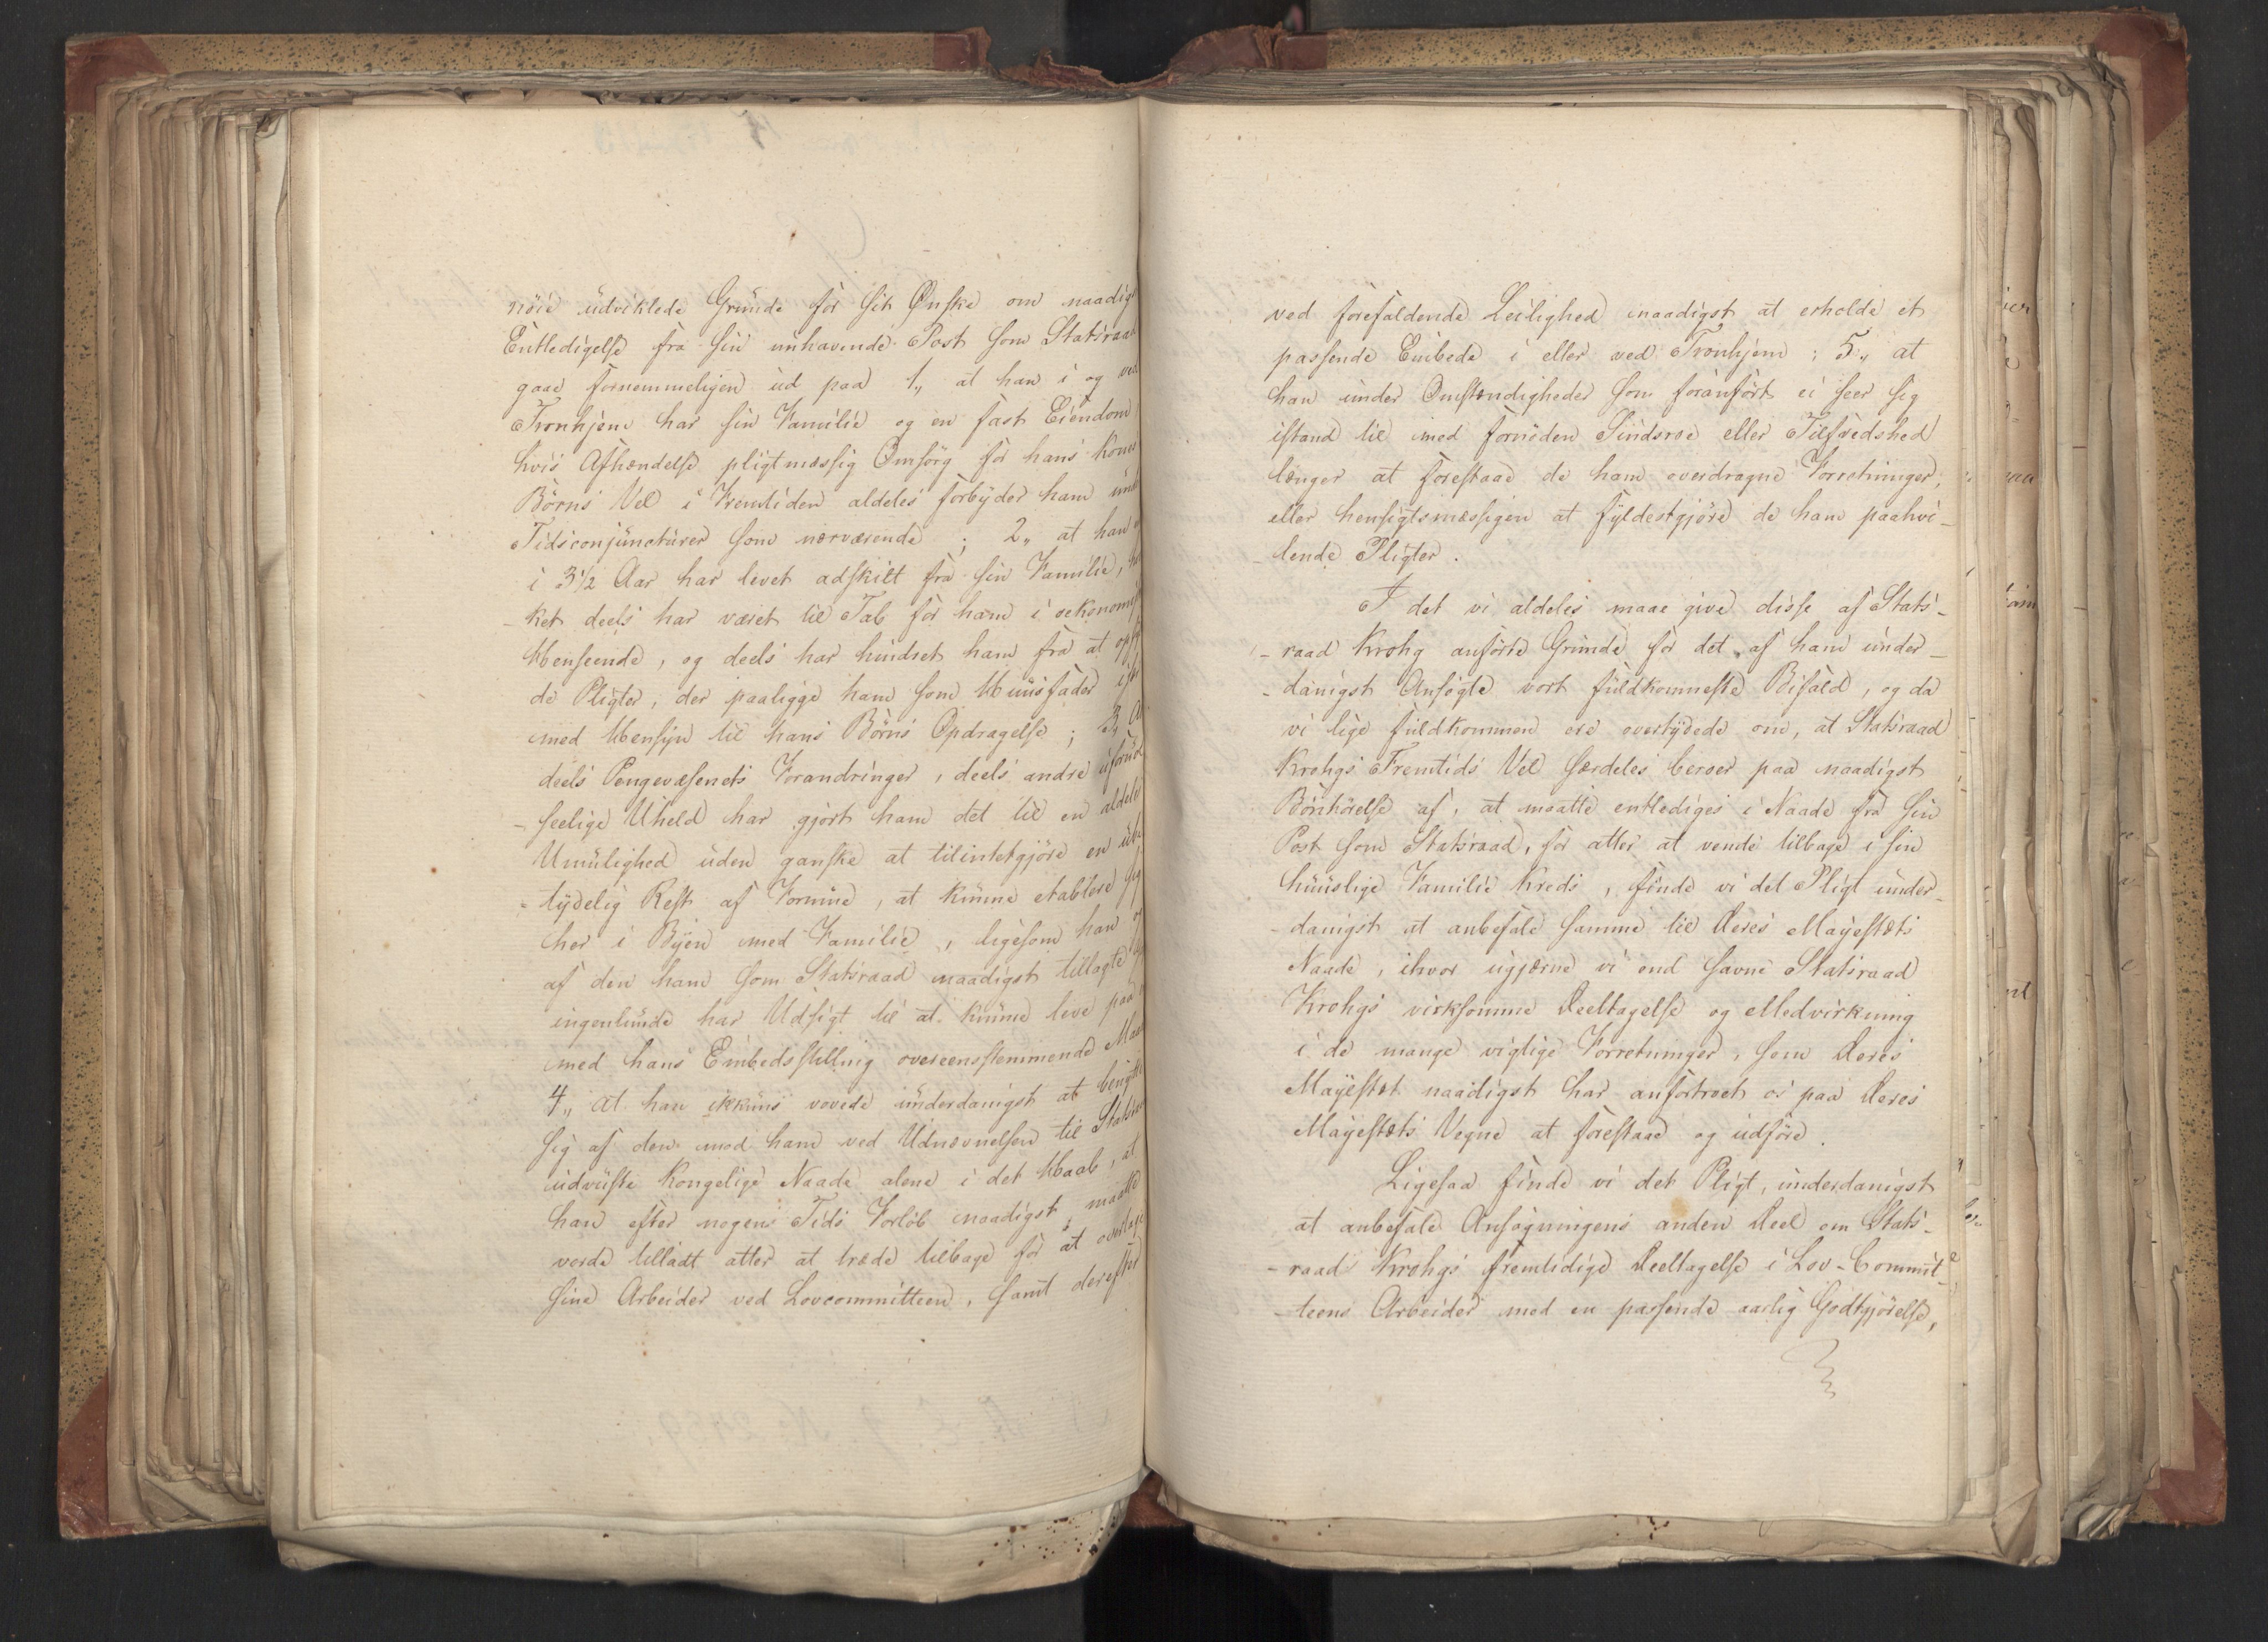 nöie udviklede Grunde for sit Ønske om naadigst
Entledigelse fra sin innhavende Post som Statsraad
gaae fornemmeligen ud paa 1„ at han i og ved
Tronhjem har sin Familie og en fast Eiendom
hvis Afhændelse pligtmæssig Omsorg for hans Kones
Börns Vel i Fremtiden aldeles forbyder ham under
Tidsconjuncturer som nærværende; 2„ at han
i 3 1/2 Aar har levet adskilt fra sin Familie,
-ket deels har været til Tab for ham i oekonomisk
Henseende, og deels har hindret ham fra at
de Pligter, der paaligge ham som Huusfader
med Hensyn til hans Börns Opdragelse; 3„ At
deels Pengevæsenets Forandringer, deels andre uforud
-seelige Uheld har gjort ham det til en aldeles
Umulighed uden ganske at tilintetgjöre en
-tydelig Rest af Formue, at kunne etablere sig
her i Byen med Familie, ligesom han
af den ham som Statsraad naadigst tillagte
ingenlunde har Udsigt til at kunne leve paa
med hans Embedsstilling overeensstemmende
4„ at han ikkuns vovede underdanigst at benytte
sig af den mod ham ved Udnævnelsen til Statsraad
udviiste Kongelige Naade alene i det Haab, at
han efter nogen Tids Forlöb naadigst maatte
vorde tilladt atter at træde tilbage for at overtage
sine Arbeider ved Lovcommitteen, samt derefter
ved forefaldende Leilighed naadigst at erholde et
passende Embede i eller ved Tronhjem; 5„ at
han under Omstændigheder som foranfört ei seer sig
istand til med fornöden Sindsroe eller Tilfredshed
længer at forestaae de ham overdragne Forretninger,
eller hensigtsmæssigen at fyldestgjöre de ham paahvi-
-lende Pligter.
I det vi aldeles maae give disse af Stats-
-raad Krohg anförte Grunde for det af ham under-
-danigst Ansögte vort fuldkomneste Bifald, og da
vi lige fuldkommen ere overtydede om, at Statsraad
Krohgs Fremtids Vel særdeles beroer paa naadigst
Bönhörelse af, at maatte entlediges i Naade fra sin
Post som Statsraad, for atter at vende tilbage i sin
huuslige Familie Kreds, finde vi det Pligt under-
-danigst at anbefale samme til Deres Mayestæts
Naade, ihvor ugjerne vi end savne Statsraad
Krohgs virksomme Deeltagelse og Medvirkning
i de mange vigtige Forretninger, som Deres
Mayestæt naadigst har anfortroet os paa Deres
Mayestæts Vegne at forestaae og udföre.
Ligesaa finde vi det Pligt, underdanigst
at anbefale Ansögningens anden Deel om Stats-
-raad Krohgs fremtidige Deeltagelse i Lov-Commit-
-teens Arbeider med en passende aarlig Godtgjörelse,